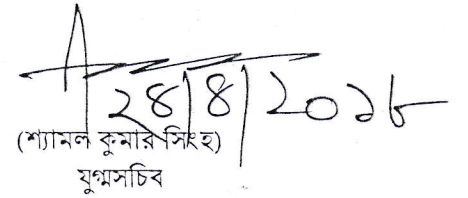 ২৪/৪/২০১৮
(শ্যামল কুমার সিংহ)
যুগ্মসচিব